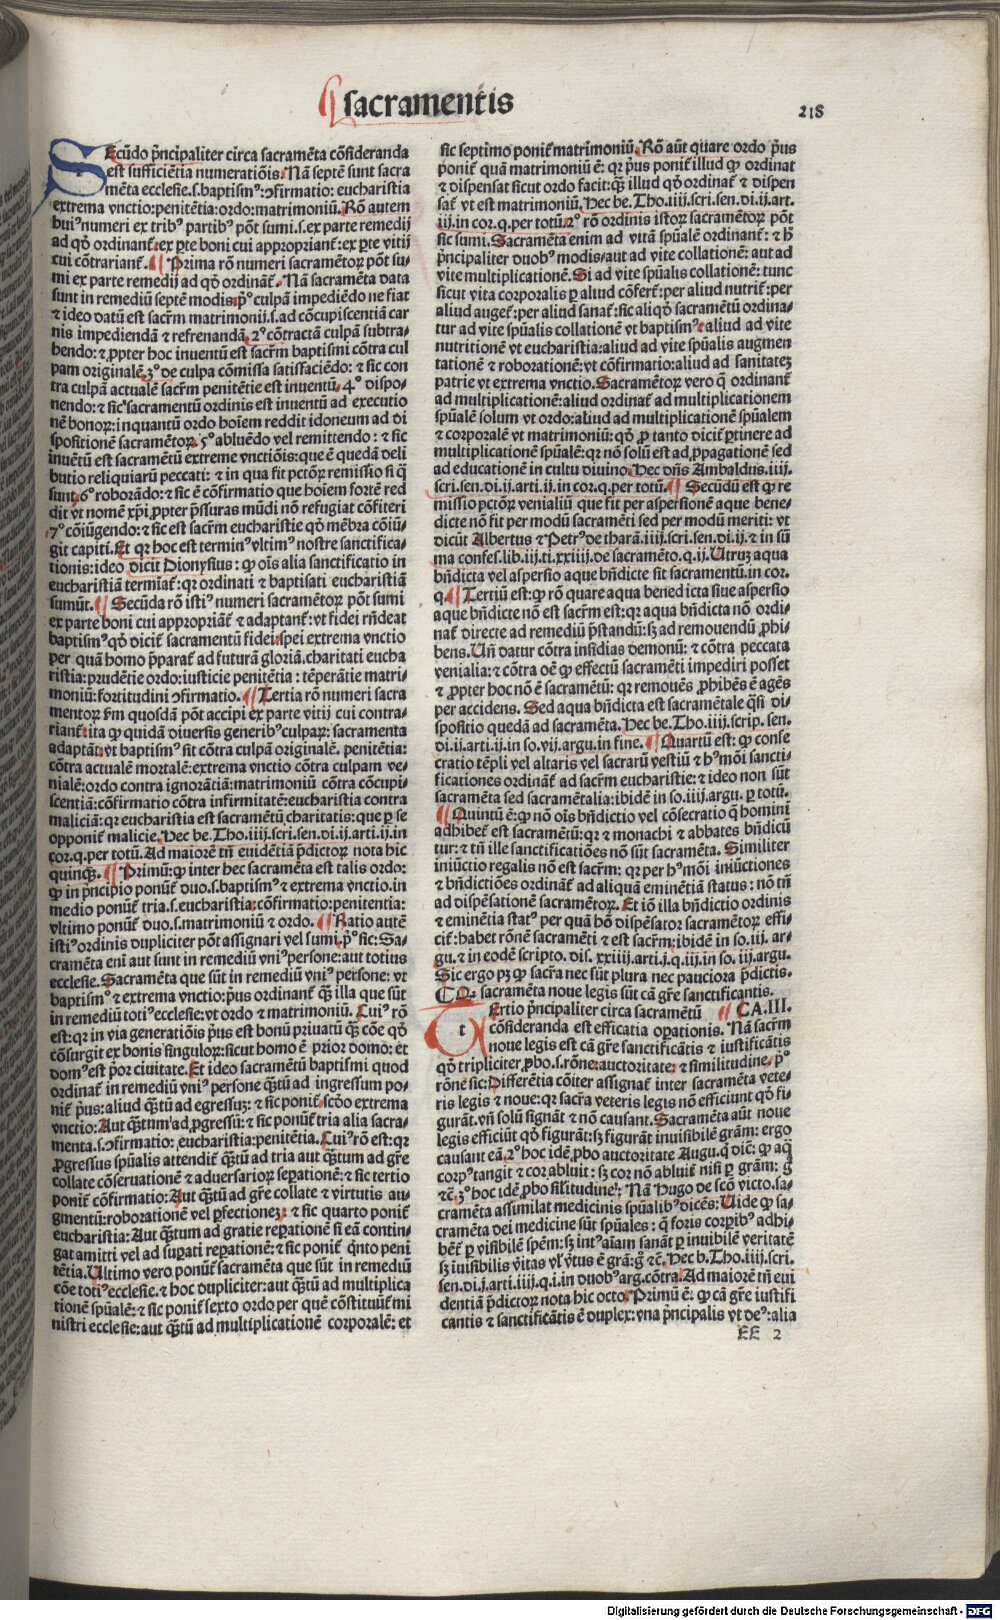 ¶ sacramentis
218
SEcũdo pͥncipaliter circa sacramẽta cõsideranda
est sufficiẽtia numerationis. Nã septẽ sunt sacra
mẽta ecclesie.s.baptism⁹: ꝯfirmatio: eucharistia
extrema vnctio: penitẽtia: ordo: matrimoniũ. Rõ autem
hui⁹ numeri ex trib⁹ partib⁹ põt sumi.s. ex parte remedij
ad qd̓ ordinant᷑: ex ꝑte boni cui appropriant᷑: ex ꝑte vitij
cui cõtrariant᷑. ¶ Prima rõ numeri sacramẽtoꝝ põt su⸗
mi ex parte remedij ad qd̓ ordinãt᷑. Nã sacramẽta data
sunt in remediũ septẽ modis. pͦ culpã impediẽdo ne fiat
⁊ ideo datũ est sacr̃m matrimonij.s. ad cõcupiscentiã car
nis impediendã ⁊ refrenandã. 2ͦ cõtractã culpã subtra⸗
hendo: ⁊ ꝓpter hoc inventũ est sacr̃m baptismi cõtra cul
pam originalẽ. 3ͦ de culpa cõmissa satisfaciẽdo: ⁊ sic con
tra culpã actualẽ sacr̃m penitẽtie est inuentũ. 4ͦ dispo⸗
nendo: ⁊ sic sacramentũ ordinis est inuentũ ad executio
nẽ bonoꝝ: inquantũ ordo hoĩem reddit idoneum ad di
spositionẽ sacramẽtoꝝ. 5ͦ abluẽdo vel remittendo: ⁊ sic
inuẽtũ est sacramẽtũ extreme vnctiõis: que ẽ quedã deli
butio reliquiarũ peccati: ⁊ in qua fit pctõꝝ remissio si q̃
sunt. 6ͦ roborãdo: ⁊ sic ẽ cõfirmatio que hoĩem fortẽ red
dit vt nomẽ xp̃i ꝓpter p̃ssuras mũdi nõ refugiat cõfiteri
7ͦ cõiũgendo: ⁊ sic est sacr̃m eucharistie qd̓ mẽbra cõiũ⸗
git capiti. Et qꝛ hoc est termin⁹ vltim⁹ nostre sanctifica⸗
tionis: ideo dicit Dionysius: ꝙ oĩs alia sanctificatio in
eucharistiã termiat᷑: qꝛ ordinati ⁊ baptisati eucharistiã
sumũt. ¶ Secũda rõ isti⁹ numeri sacramẽtoꝝ põt sumi
ex parte boni cui appropriãt᷑ ⁊ adaptant᷑: vt fidei rñdeat
baptism⁹ qd̓ dicit᷑ sacramentũ fidei. spei extrema vnctio
per quã homo p̃parat᷑ ad futurã gloriã. charitati eucha
ristia: prudẽtie ordo: iusticie penitẽtia: tẽperãtie matri⸗
moniũ: fortitudini ꝯfirmatio. ¶ Tertia rõ numeri sacra
mentoꝝ ẜm quosdã põt accipi ex parte vitij cui contra⸗
riant᷑: ita ꝙ quidã diuersis generib⁹ culpaꝝ: sacramenta
adaptãt: vt baptism⁹ sit cõtra culpã originalẽ. penitẽtia:
cõtra actualẽ mortalẽ: extrema vnctio cõtra culpam ve⸗
nialẽ: ordo contra ignorãtiã: matrimoniũ cõtra cõcupi⸗
scentiã: cõfirmatio cõtra infirmitatẽ: eucharistia contra
maliciã: qꝛ eucharistia est sacramẽtũ charitatis: que ꝑ se
opponit᷑ malicie. Hec be. Tho.iiij.scri.sen.di.ij.arti.ij.in
cor.q.per totũ. Ad maiorẽ tñ euidẽtiã p̃dictoꝝ nota hic
quinqꝫ. ¶ Primũ: ꝙ inter hec sacramẽta est talis ordo:
ꝙ in pͥncipio ponũt᷑ duo.s. baptism⁹ ⁊ extrema vnctio. in
medio ponũt᷑ tria.s. eucharistia: cõfirmatio: penitentia:
vltimo ponũt᷑ duo.s. matrimoniũ ⁊ ordo. ¶ Ratio autẽ
isti⁹ ordinis dupliciter põt assignari vel sumi. pͦ sic: Sa⸗
cramẽta eni aut sunt in remediũ vni⁹ persone: aut totius
ecclesie. Sacramẽta que sũt in remediũ vni⁹ persone: vt
baptism⁹ ⁊ extrema vnctio: pͥus ordinant᷑ qꝫ illa que sũt
in remediũ toti⁹ ecclesie: vt ordo ⁊ matrimoniũ. Cui⁹ rõ
est: qꝛ in via generatiõis pͥus est bonũ priuatũ qꝫ cõe qd̓
cõsurgit ex bonis singuloꝝ: sicut homo ẽ prior domo: et
dom⁹ est pͥor ciuitate. Et ideo sacramẽtũ baptismi quod
ordinat᷑ in remediũ vni⁹ persone qꝫtũ ad ingressum po⸗
nit᷑ pͥus: aliud qꝫtũ ad egressuꝫ: ⁊ sic ponit᷑ scd̓o extrema
vnctio: Aut qꝫtum ad ꝓgressũ: ⁊ sic ponũt᷑ tria alia sacra⸗
menta.s. ꝯfirmatio: eucharistia: penitẽtia. Cui⁹ rõ est: qꝛ
ꝓgressus spũalis attendit᷑ qꝫtũ ad tria aut qꝫtum ad gr̃e
collate cõseruationẽ ⁊ aduersarioꝝ seꝑationẽ: ⁊ sic tertio
ponit᷑ cõfirmatio: Aut qꝫtũ ad gr̃e collate ⁊ virtutis au⸗
gmentũ: roborationẽ vel ꝑfectioneꝫ: ⁊ sic quarto ponit᷑
eucharistia: Aut qꝫtum ad gratie reꝑationẽ si eã contin⸗
gat amitti vel ad suꝑati reꝑationẽ: ⁊ sic ponit᷑ qͥnto peni
tẽtia. Ultimo vero ponũt᷑ sacramẽta que sũt in remediũ
cõe toti⁹ ecclesie. ⁊ hoc dupliciter: aut qꝫtũ ad multiplica
tionẽ spũalẽ: ⁊ sic ponit᷑ sexto ordo per quẽ cõstituũt᷑ mi
nistri ecclesie: aut qꝫtũ ad multiplicationẽ corporalẽ: et
sic septimo ponit᷑ matrimoniũ. Rõ aũt quare ordo pͥus
ponit᷑ quã matrimoniũ ẽ: qꝛ pͥus ponit᷑ illud ꝙ ordinat
⁊ dispensat sicut ordo facit: qꝫ illud qd̓ ordinat᷑ ⁊ dispen
sat᷑ vt est matrimoniũ. Hec be. Tho.iiij.scri.sen.di.ij.art.
iij.in cor.q.per totũ. 2ͦ rõ ordinis istoꝝ sacramẽtoꝝ põt
sic sumi. Sacramẽta enim ad vitã spũalẽ ordinant᷑: ⁊ h̓
pͥncipaliter duob⁹ modis: aut ad vite collationẽ: aut ad
vite multiplicationẽ. Si ad vite spũalis collationẽ: tunc
sicut vita corporalis ꝑ aliud cõfert᷑: per aliud nutrit᷑: per
aliud auget᷑: per aliud sanat᷑: sic aliqd̓ sacramẽtũ ordina⸗
tur ad vite spũalis collationẽ vt baptism⁹: aliud ad vite
nutritionẽ vt eucharistia: aliud ad vite spũalis augmen
tationẽ ⁊ roborationẽ: vt cõfirmatio: aliud ad sanitateꝫ
patrie vt extrema vnctio. Sacramẽtoꝝ vero q̃ ordinant᷑
ad multiplicationẽ: aliud ordinat᷑ ad multiplicationem
spũalẽ solum vt ordo: aliud ad multiplicationẽ spũalem
⁊ corporalẽ vt matrimoniũ: qd̓ ꝓ tanto dicit᷑ ꝑtinere ad
multiplicationẽ spũalẽ: qꝛ nõ solũ est ad ꝓpagationẽ sed
ad educationẽ in cultu diuino. Hec dñs Ambaldus.iiij.
scri.sen.di.ij.arti.ij.in cor.q.per totũ. ¶ Secũdũ est ꝙ re
missio pctõꝝ venialiũ que fit per aspersionẽ aque bene⸗
dicte nõ fit per modũ sacramẽti sed per modũ meriti: vt
dicũt Albertus ⁊ Petr⁹ de tharã.iiij.scri.sen.di.ij.⁊ in sũ
ma confes.lib.iij.ti.xxiiij.de sacramẽto.q.ij. Utruꝫ aqua
bñdicta vel aspersio aque bñdicte sit sacramentũ.in cor.
q. ¶ Tertiũ est: ꝙ rõ quare aqua benedicta siue aspersio
aque bñdicte nõ est sacr̃m est: qꝛ aqua bñdicta nõ ordi⸗
nat᷑ directe ad remediũ p̃standũ: sꝫ ad remouendũ ꝓhi⸗
bens. Un̄ datur cõtra insidias demonũ: ⁊ cõtra peccata
venialia: ⁊ cõtra oẽ ꝙ effectũ sacramẽti impediri posset
⁊ ꝓpter hoc nõ ẽ sacramẽtũ: qꝛ remouẽs ꝓhibẽs ẽ agẽs
per accidens. Sed aqua bñdicta est sacramẽtale qͣsi di⸗
spositio quedã ad sacramẽta. Hec be. Tho.iiij.scrip.sen.
di.ij.arti.ij.in so.vij.argu.in fine. ¶ Quartũ est: ꝙ conse
cratio tẽpli vel altaris vel sacrarũ vestiũ ⁊ h⁹mõi sancti⸗
ficationes ordinãt᷑ ad sacr̃m eucharistie: ⁊ ideo non sũt
sacramẽta sed sacramẽtalia: ibidẽ in so.iiij.argu.ꝑ totũ.
¶ Quintũ ẽ: ꝙ nõ oĩs bñdictio vel cõsecratio q̃ homini
adhibet᷑ est sacramẽtũ: qꝛ ⁊ monachi ⁊ abbates bñdicũ
tur: ⁊ tñ ille sanctificatiões nõ sũt sacramẽta. Similiter
iniũctio regalis nõ est sacr̃m: qꝛ per h⁹mõi iniũctiones
⁊ bñdictiões ordinãt᷑ ad aliquã eminẽtiã status: nõ tñ
ad dispẽsationẽ sacramẽtoꝝ. Et iõ illa bñdictio ordinis
⁊ eminẽtia stat⁹ per quã hõ dispẽsator sacramẽtoꝝ effi⸗
cit᷑: habet rõnẽ sacramẽti ⁊ est sacr̃m: ibidẽ in so.iij.ar⸗
gu.⁊ in eodẽ scripto.dis.xxiiij.arti.j.q.iij.in so.iij.argu.
Sic ergo pꝫ ꝙ sacr̃a nec sũt plura nec pauciora p̃dictis.
¶ Qꝙ sacramẽta noue legis sũt cã gr̃e sanctificantis.
tErtio pͥncipaliter circa sacramẽtũ ¶ CA.III.
cõsideranda est efficatia oꝑationis. Nã sacr̃m
noue legis est cã gr̃e sanctificãtis ⁊ iustificãtis
qd̓ tripliciter ꝓbo.s. rõne: auctoritate: ⁊ similitudine. pͦ
rõne sic: Differẽtia cõiter assignat᷑ inter sacramẽta vete⸗
ris legis ⁊ noue: qꝛ sacr̃a veteris legis nõ efficiunt qd̓ fi⸗
gurãt. vñ solũ signãt ⁊ nõ causant. Sacramẽta aũt noue
legis efficiũt qd̓ figurãt: sꝫ figurãt inuisibilẽ gr̃am: ergo
causant eã. 2ͦ hoc idẽ ꝓbo auctoritate Augu. q̃ dic̃: ꝙ aq̃
corp⁹ tangit ⁊ cor abluit: sꝫ cor nõ abluit nisi ꝑ gr̃am: g̊
⁊c̃. 3ͦ hoc idẽ ꝓbo sil̃itudine: Nã Hugo de scõ victo. sa⸗
cramẽta assimilat medicinis spũalib⁹ dicẽs: Uide ꝙ sa⸗
cramẽta dei medicine sũt spũales: q̃ foris corꝑib⁹ adhi⸗
bẽt᷑ ꝑ visibilẽ spẽm: sꝫ int⁹ aĩam sanãt ꝑ inuibilẽ veritatẽ
sꝫ iuisibilis v̓itas vl̓ v̓tus ẽ gr̃a: g̊ ⁊c̃. Hec b. Tho.iiij.scri.
sen.di.j.arti.iiij.q.i.in duob⁹ arg.cõtra. Ad maiorẽ tñ eui
dentiã p̃dictoꝝ nota hic octo. Primũ ẽ: ꝙ cã gr̃e iustifi
cantis ⁊ sanctificãtis ẽ duplex: vna pͥncipalis vt de⁹: alia
EE 2
Digitalisierung gefördert durch die Deutsche Forschungsgemeinschaft - DFG